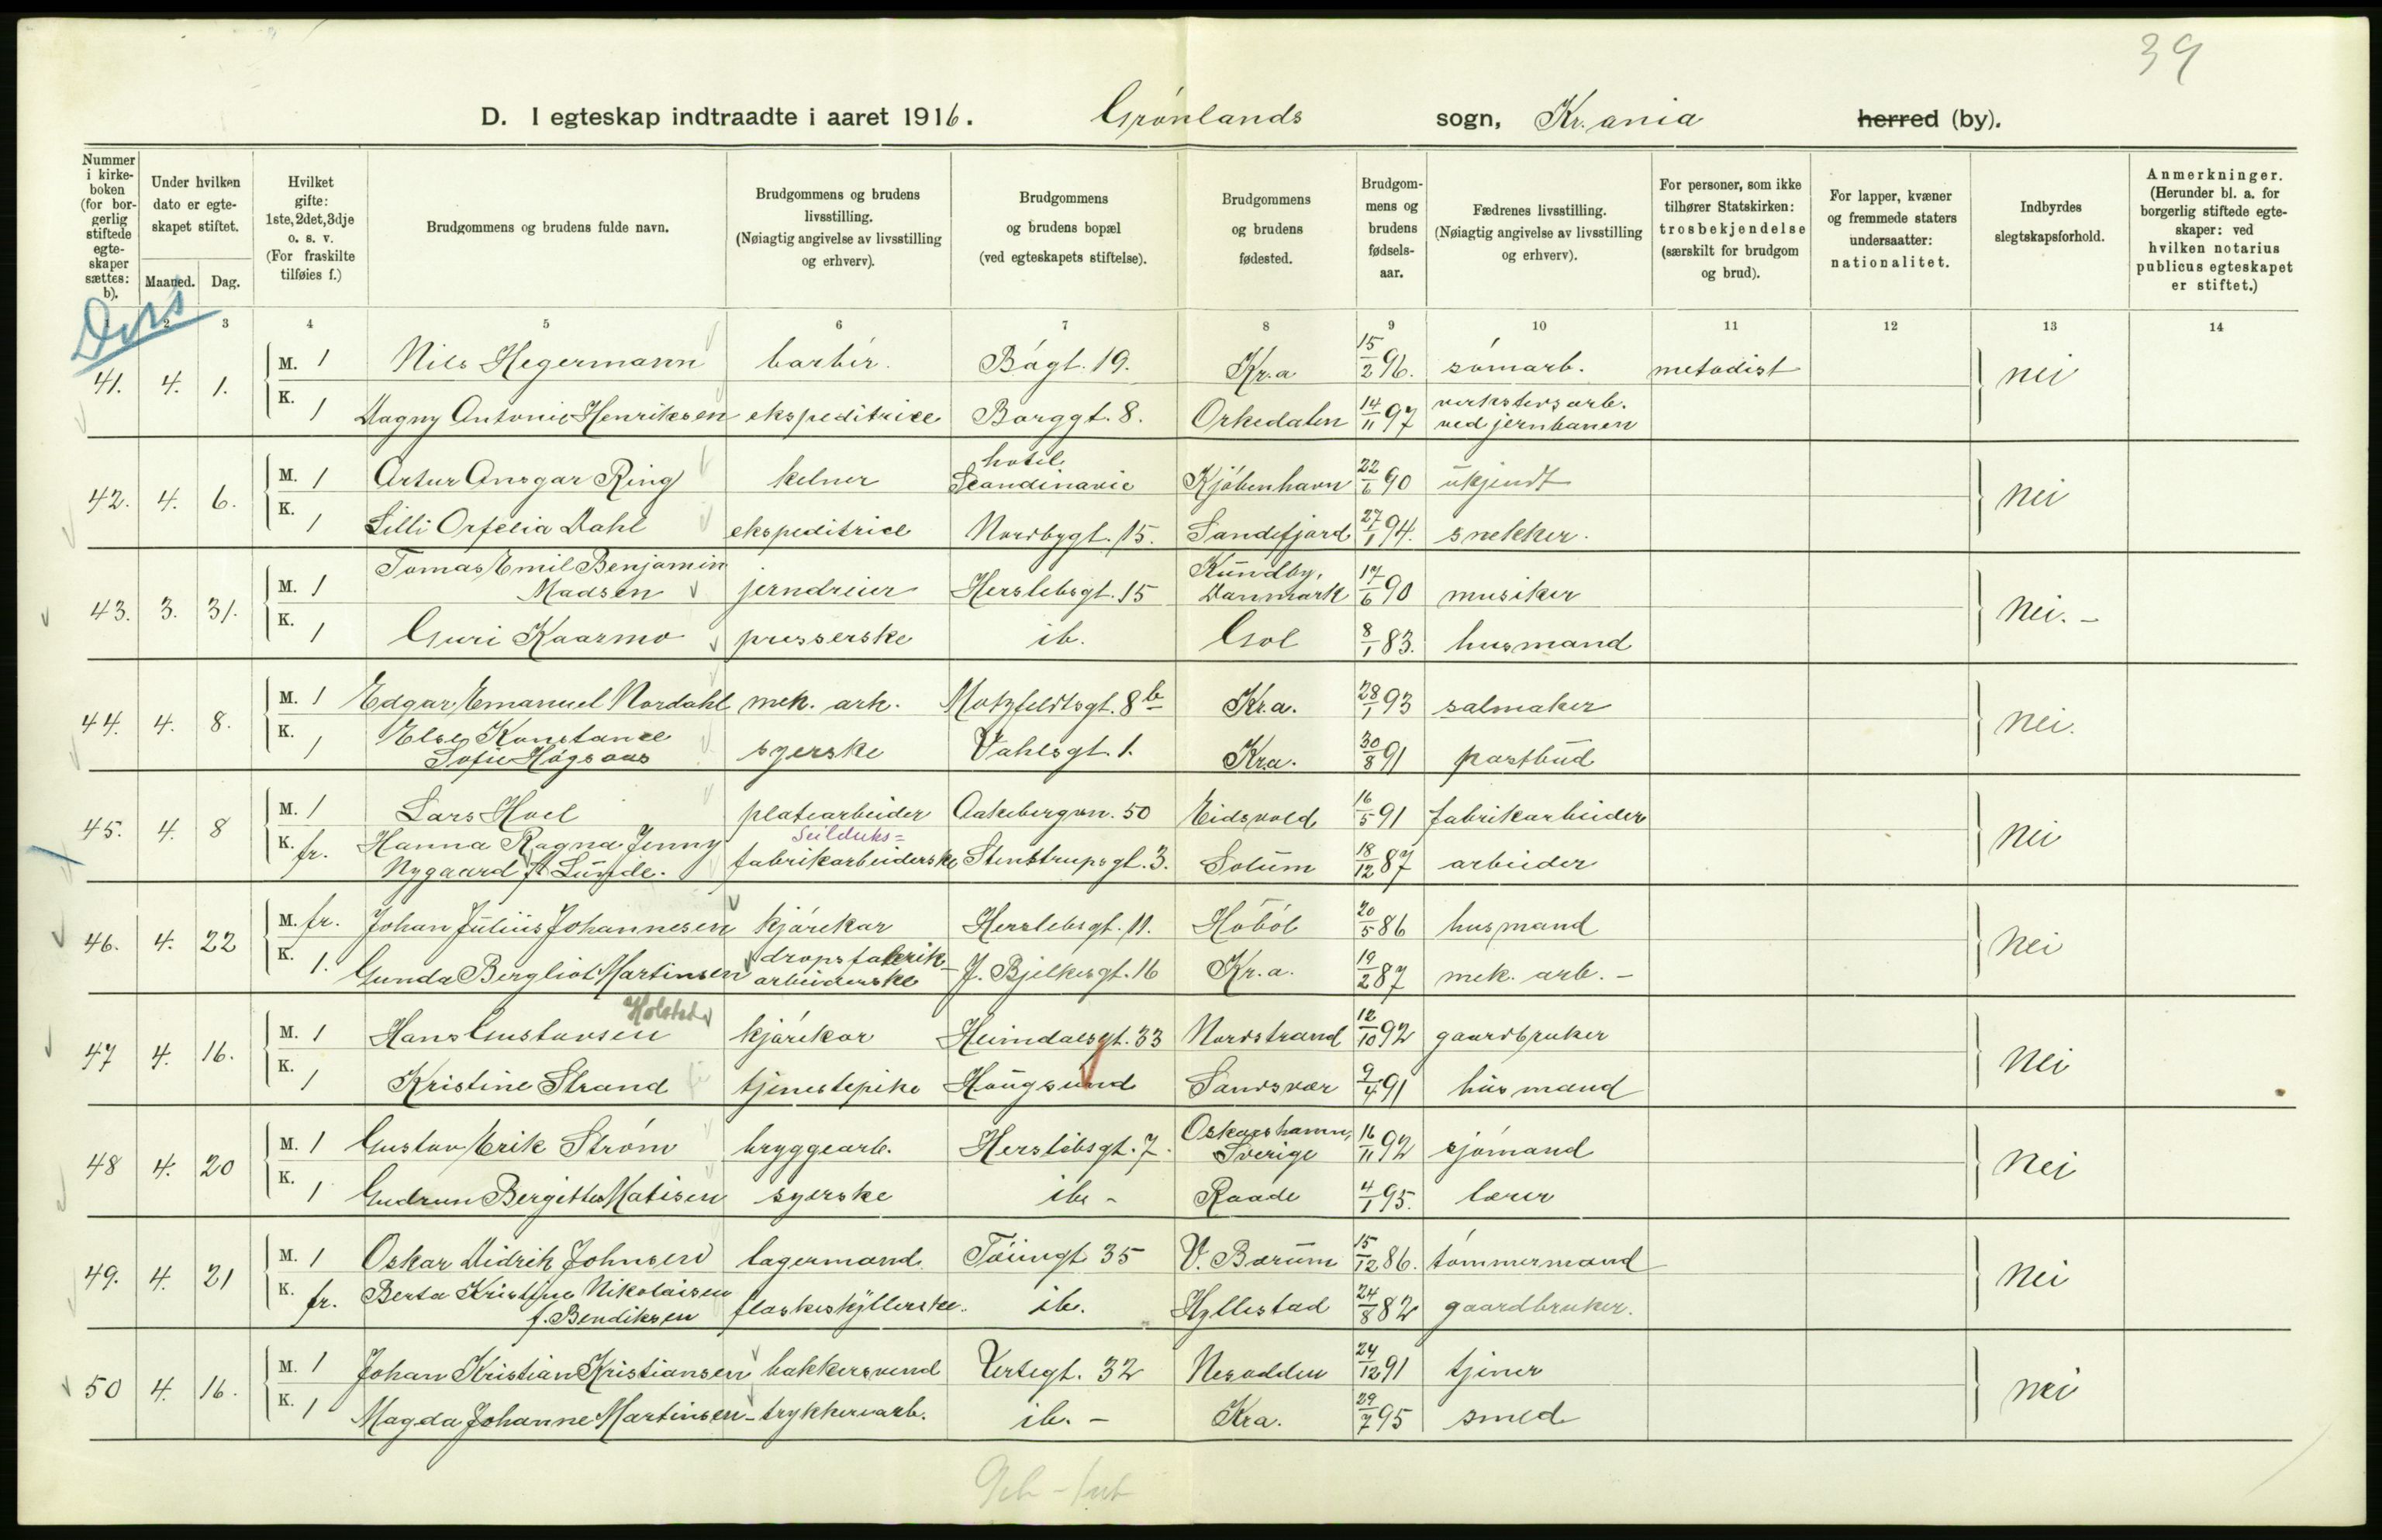 39
D. I egteskap indtraadte i aaret 1916. Grønlands sogn, Kr.ania herred (by).
Nummer i kirkeboken (for borgerlig stiftede egteskaper sættes: b).
Under hvilken dato er egteskapet stiftet.
Maaned. Dag.
Hvilket gifte: 1ste, 2det, 3dje o. s. v. (For fraskilte tilføies f.)
Brudgommens og brudens fulde navn.
Brudgommens og brudens livsstilling. (Nøiagtig angivelse av livsstilling og erhverv).
Brudgommens og brudens bopæl (ved egteskapets stiftelse).
Brudgommens og brudens fødested.
Brudgommens og brudens fødselsaar.
Fædrenes livsstilling. (Nøiagtig angivelse av livsstilling og erhverv).
For personer, som ikke tilhører Statskirken: trosbekjendelse (særskilt for brudgom og brud).
For lapper, kvæner og fremmede staters undersaatter: nationalitet.
Indbyrdes slegtskapsforhold.
Anmerkninger. (Herunder bl. a. for borgerlig stiftede egteskaper: ved hvilken notarius publicus egteskapet er stiftet.)
1 2 3 4 5 6 7 8 9 10 11 12 13 14
41. 4. 1. M. 1 Nils Hegermann barbér. Bågt. 19. Kr.a 15/2 96. sømarb. metodist nei
K. 1 Dagny Antonie Henriksen ekspeditrice Borggt. 8. Orkedalen 14/11 97 verkstedsarb. ved jernbanen
42. 4. 6. M. 1 Artur Ansgar Ring kelner hotel Scandinavie Kjøbenhavn 22/6 90 ukjendt nei
K. 1 Lilli Orfelia Dahl ekspeditrice Nordbygt. 15. Sandefjord 27/1 94. snekker.
43. 3. 31. M. 1 Tomas Emil Benjamin Madsen jerndreier Herslebsgt. 15 Kundby, Danmark 17/6 90 musiker nei. -
K. 1 Guri Kaarmo presserske ib. Gol 8/1 83. husmand
44. 4. 8. M. 1 Edgar Emanuel Nordahl mek. arb. Motzfeldtsgt. 8b Kr.a. 28/1 93 salmaker nei.
K. 1 Else Konstance Sofie Høgsaas syerske Vahlsgt. 1. Kr.a. 30/8 91 postbud
45. 4. 8 M. 1 Lars Hoel platearbeider Aakebergvn. 50 Eidsvold 16/5 91 fabrikarbeider nei
K. fr. Hanna Ragna Jenny Nygaard f. Lunde. Seilduks= fabrikarbeiderske Stenstrupsgt. 3. Solum 18/12 87 arbeider
46. 4. 22 M. fr. Johan Julius Johannesen kjørekar Herslebsgt. 11. Høbøl 20/5 86 husmand nei
K. 1. Gunda Bergliot Martinsen dropsfabrik arbeiderske J. Bjelkesgt. 16 Kr.a. 19/2 87 mek. arb. -
47 4. 16. M. 1 Hans Gustavsen Holstad kjørekar Heimdalsgt. 33 Nordstrand 12/10 92 gaardbruker nei
K. 1 Kristine Strand tjenestepike Hougsund Sandsvær 9/4 91 husmand
48 4. 20 M. 1 Gustav Erik Strøm bryggearb. Herslebsgt. 7. Oskarshamn, Sverige 16/11 92 sjømand nei
K. 1 Gudrun Bergitte Matisen syerske ib. - Raade 4/1 95. lærer
49. 4. 21 M. 1 Oskar Didrik Johnsen lagermand. Tøiengt 35 V. Bærum 15/12 86. tømmermand nei
K. fr. Berta Kristine Nikolaisen f. Bendiksen flaskeskyllerske. ib. Hyllestad 24/8 82 gaardbruker.
50 4. 16. M. 1 Johan Kristian Kristiansen bakkersvend Urtegt. 32 Nesodden 24/12 91 tjener nei
K. 1 Magda Johanne Martinsen - trykkeriarb. ib. - Kr.a. 29/7 95 smed